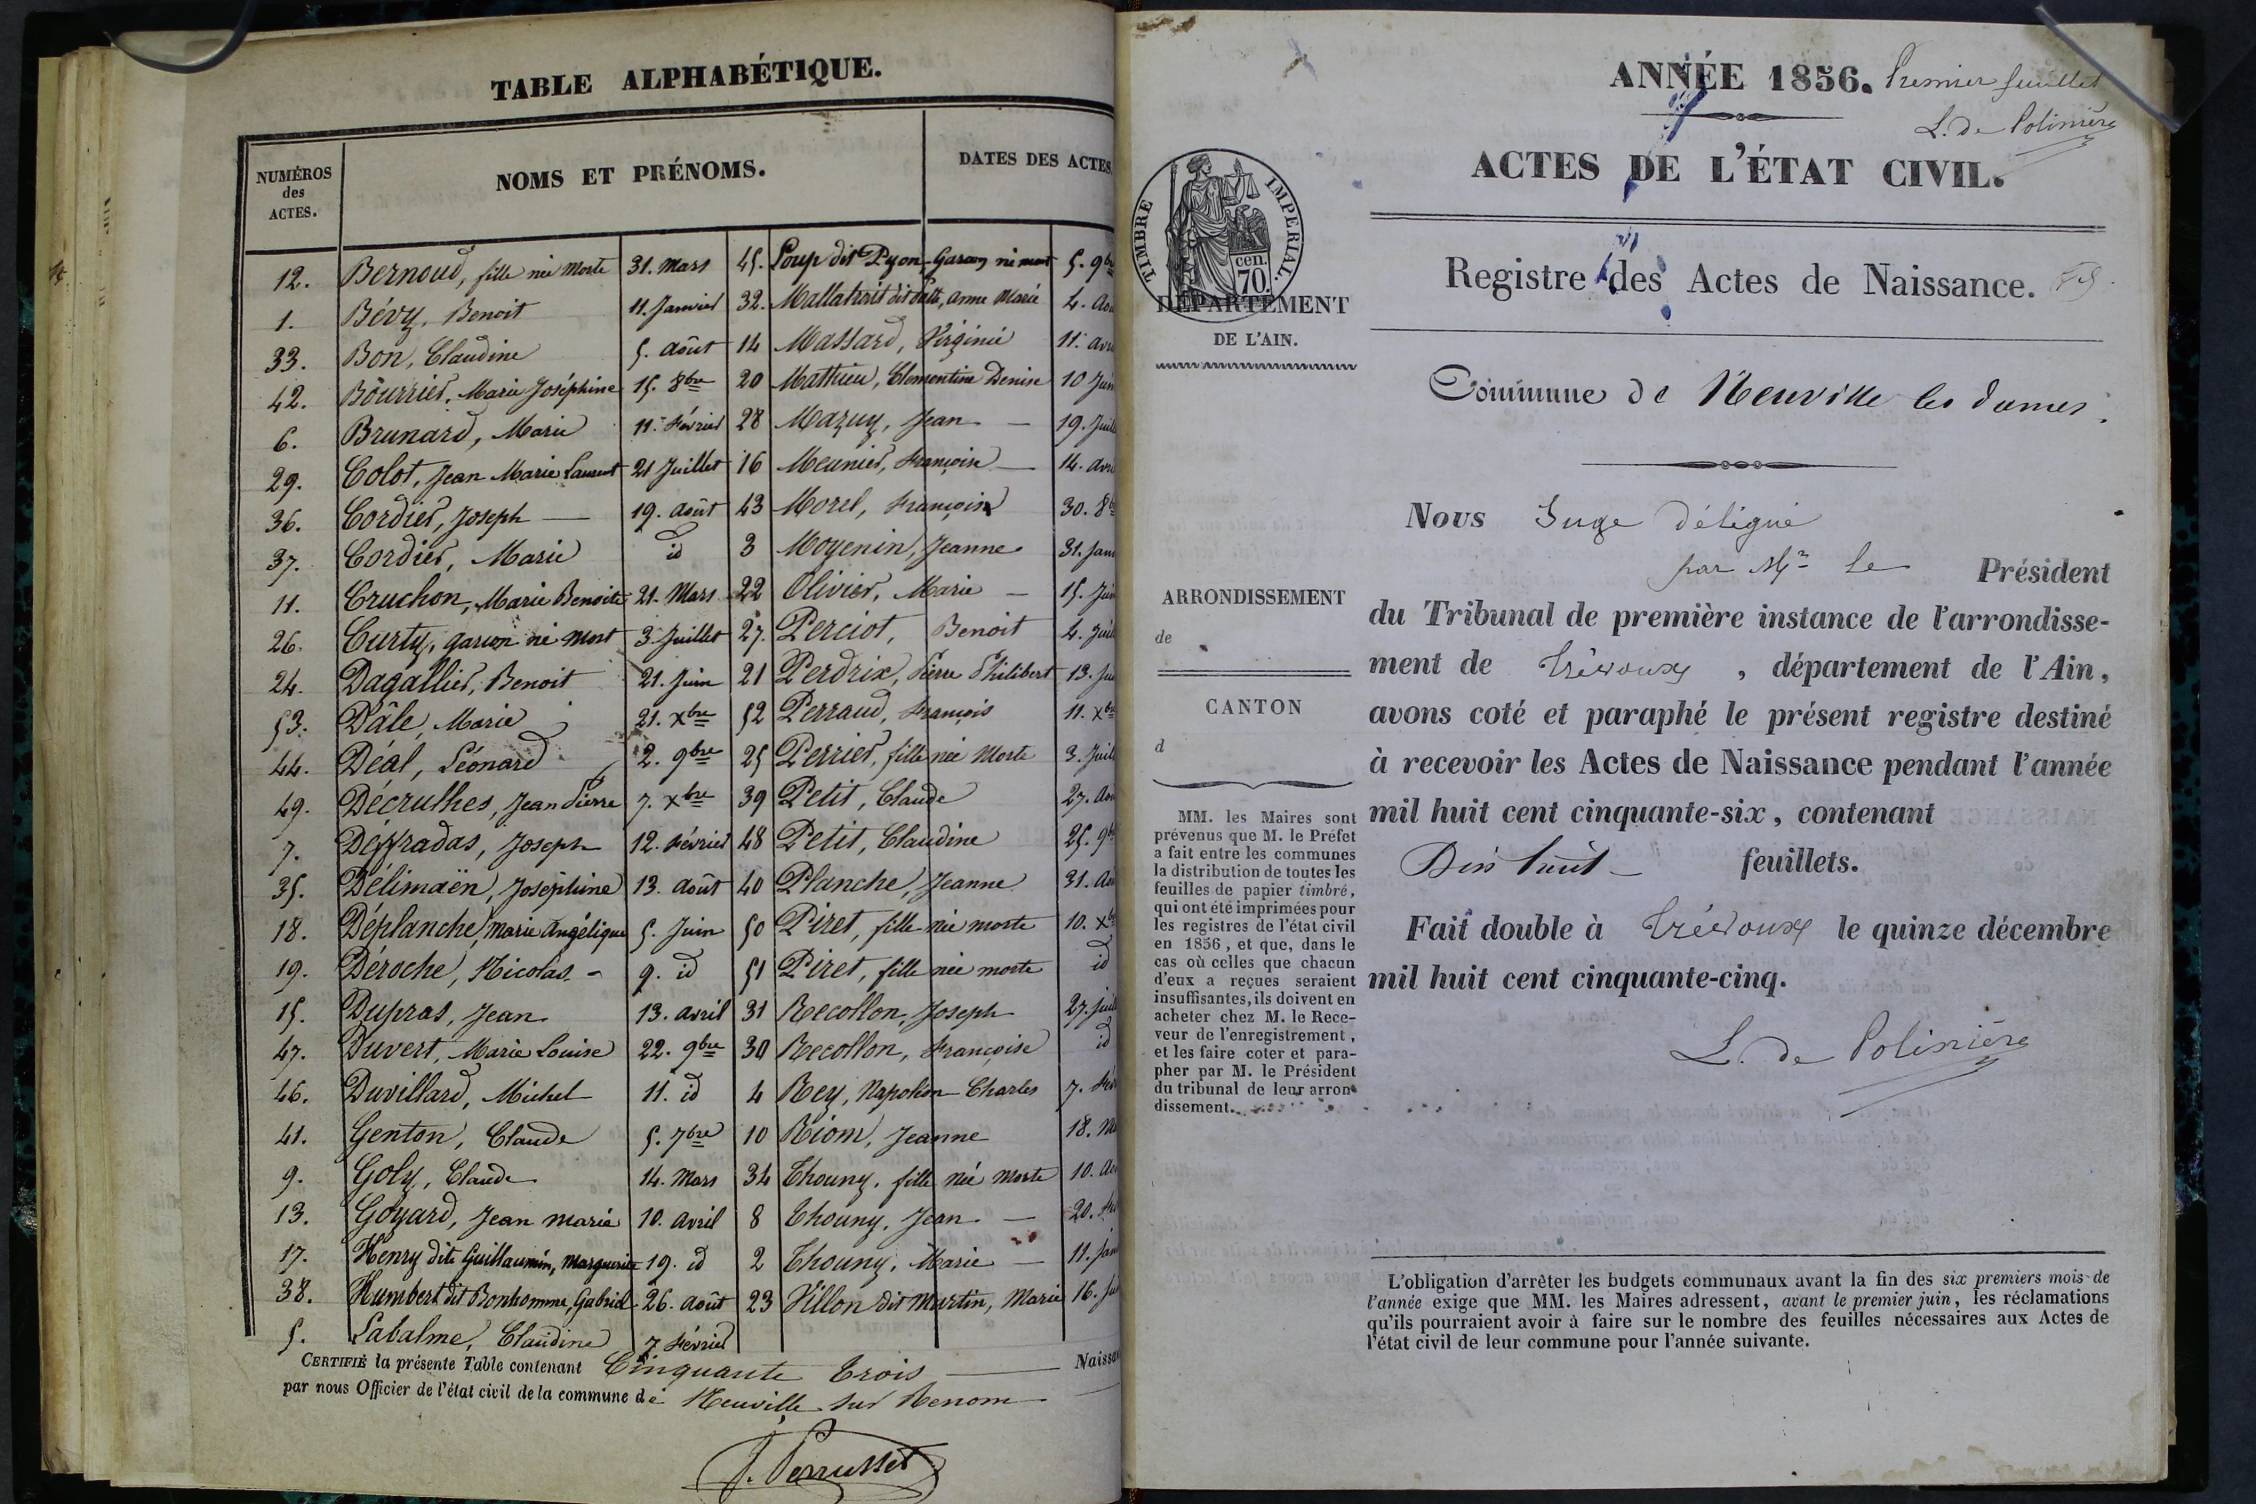 TABLE ALPHABÉTIQUE.
NUMÉROS
des
ACTES.
NOMS ET PRÉNOMS.
DATES DES ACTES.
12. Bernoud, fille née Morte 31. Mars
1. Bévy, Benoit 11. Janvier
33. Bon, Claudine 5. Août
42. Bourrier, Marie Joséphine 15. 8bre
6. Brunard, Marie 11. Février
29. Colot, Jean Marie Laurent 21 Juillet
36. Cordier, Joseph — 19. Août
37. Cordier, Marie id
11. Cruchon, Marie Benoite 21. Mars
26. Curty, garçon né mort 3. Juillet
24. Dagallier, Benoit 21. Juin
53. Dâle, Marie 21. Xbre
44. Déal, Léonard 2. 9bre
49. Décruthes, Jean Pierre 7. Xbre
7. Deffradas, Joseph 12. Février
35. Délimaën, Joséphine 13. août
18. Déplanche, Marie Angélique 5. Juin
19. Déroche, Nicolas - 9. id
15. Dupras, Jean 13. avril
47. Duvert, Marie Louise 22. 9bre
46. Duvillard, Michel 11. id
41. Genton, Claude 5. 7bre
9. Goly, Claude 14. Mars
13. Goyard, Jean Marie 10. Avril
17. Henry dite Guillaumin, Marguerite 19. id
38. Humbert dit Bonhomme, Gabriel 26. Août
5. Labalme, Claudine 7 Février
45. Loup dit Pyon, Garçon né mort 5. 9bre
32. Mallatrait dit Patte, Anne Marie 4. Aou
14 Massard, Virginie 11. avr
20 Mathieu, Clementine Denise 10 Juin
28 Mazuy, Jean — 19. Juil
16 Meunier, Françoise — 14. avr
43 Morel, Françoise 30. 8b
3 Moyenin, Jeanne 31. Jan
22 Olivier, Marie — 15. Jui
27. Perciot, Benoit 4. Juil
21 Perdrix, Pierre Philibert 13. Ju
52 Perraud, François 11. Xb
25 Perrier, fille née Morte 3. Juil
39 Petit, Claude 27. Aou
48 Petit, Claudine 25. 9b
40 Planche, Jeanne 31. Ao
50 Piret, fille née morte 10. Xb
51 Piret, fille née morte id
31 Recollon, Joseph 27. Juil
30 Recollon, Françoise id
4 Rey, Napoléon Charles 7. Fév
10 Riom, Jeanne 18. Ma
34 Thouny, fille née Morte 10. Ao
8 Thouny, Jean — 20. Fév
2 Thouny, Marie — 11. Jan
23 Villon dit Martin, Marie 16. Ju
CERTIFIÉ la présente Table contenant Cinquante Trois — Naissan
par nous Officier de l'état civil de la commune de Neuville sur Renom
J. Perrusset
ANNÉE 1856. Premier feuillet
L. de Polinière
ACTES DE L'ÉTAT CIVIL.
TIMBRE IMPERIAL.
cen.
70.
DÉPARTEMENT
DE L'AIN.
Registre des Actes de Naissance.
Commune de Neuville les dames.
Nous Juge délégué
par Mr le Président
du Tribunal de première instance de l'arrondisse-
ment de Trévoux, département de l'Ain,
avons coté et paraphé le présent registre destiné
à recevoir les Actes de Naissance pendant l'année
mil huit cent cinquante-six, contenant
Dix huit — feuillets.
Fait double à Trévoux le quinze décembre
mil huit cent cinquante-cinq.
L. de Polinière
ARRONDISSEMENT
de
CANTON
d
MM. les Maires sont
prévenus que M. le Préfet
a fait entre les communes
la distribution de toutes les
feuilles de papier timbré,
qui ont été imprimées pour
les registres de l'état civil
en 1856, et que, dans le
cas où celles que chacun
d'eux a reçues seraient
insuffisantes, ils doivent en
acheter chez M. le Rece-
veur de l'enregistrement,
et les faire coter et para-
pher par M. le Président
du tribunal de leur arron-
dissement.
L'obligation d'arrêter les budgets communaux avant la fin des six premiers mois de
l'année exige que MM. les Maires adressent, avant le premier juin, les réclamations
qu'ils pourraient avoir à faire sur le nombre des feuilles nécessaires aux Actes de
l'état civil de leur commune pour l'année suivante.